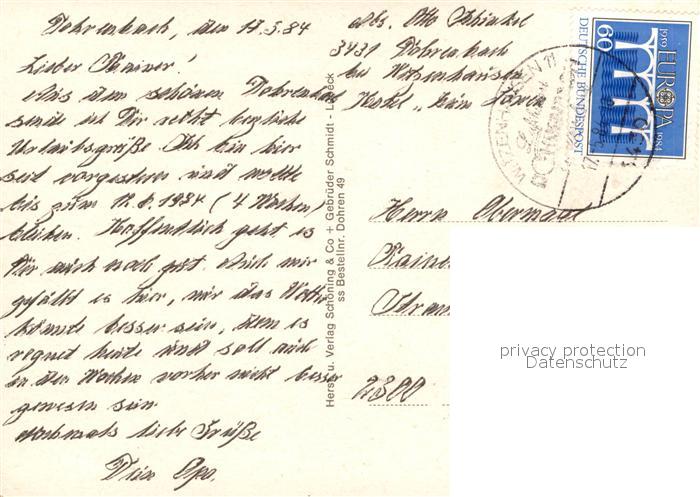 Dohrenbach, den 17.5.84
Lieber Rainer!
Aus dem schönen Dohrenbach
sende ich Dir recht herzliche
Urlaubsgrüße. Ich bin hier
seit vorgestern und wollte
bis zum 12.6.1984 (4 Wochen)
bleiben. Hoffentlich geht es
Dir auch noch gut. Auch mir
gefällt es hier, nur das Wetter
könnte besser sein, denn es
regnet heute und soll auch
in den Wochen vorher nicht besser
gewesen sein
Nochmals liebe Grüße
Dein Opa.
Abs. Otto Schinkel
3431 Dohrenbach
bei Witzenhausen
Hotel "Zum
Herrn Obermaat
Raine
Stram
2300
Herst. u. Verlag Schöning & Co + Gebrüder Schmidt - Lübeck
ss Bestellnr. Dohren 49
DEUTSCHE BUNDESPOST
60
EUROPA
1959
1984
WITZENHAUSEN 11
privacy protection
Datenschutz